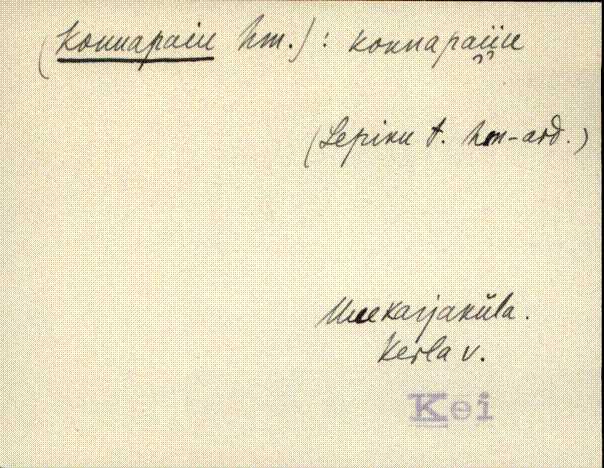 (Konnapain hm.) : konnapai̯i̯n
(Lepiku t. hm-ard.)
Muekarjaküla.
Kerla v.
Kei